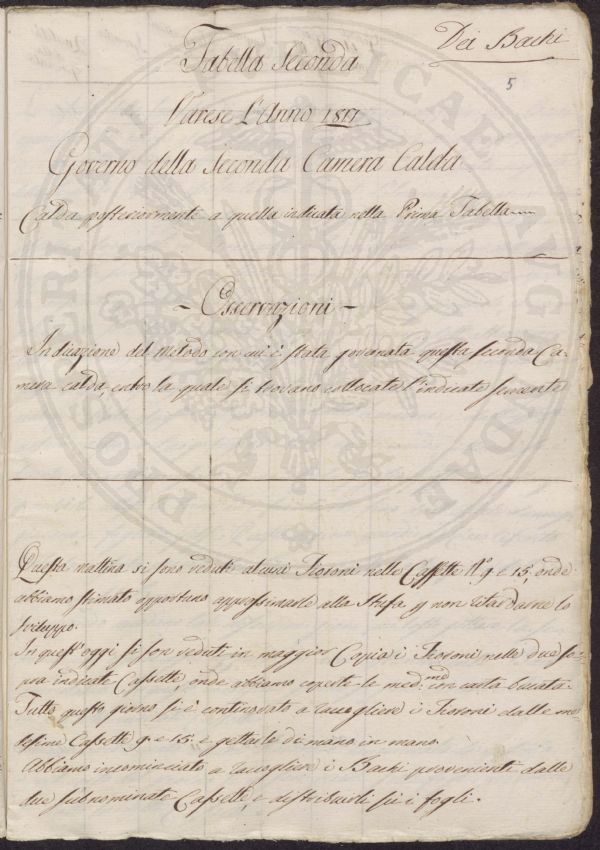 Dei Bachi
5
Tabella Seconda
Varese l'Anno 1811
Governo della Seconda Camera Calda
Calda posteriormente a quella indicata nella Prima Tabella
- Osservazioni -
Indicazione del Metodo con cui è stata governata questa seconda Ca-
mera calda, entro la quale si trovano collocate l'indicate semente
Questa mattina si sono veduti alcuni Fioroni nelle Cassette N.o 9 e 15, onde
abbiamo stimato opportuno approssimarle alla Stufa p non ritardarne lo
sviluppo.
In quest'oggi si son veduti in maggior Copia i Fioroni nelle due so-
pra indicate Cassette, onde abbiamo coperte le med.me con carta bucata.
Tutto questo giorno si è continovato a raccogliere i Fioroni dalle me-
desime Cassette 9. e 15. e gettarle di mano in mano.
Abbiamo incominciato a raccogliere i Bachi provenienti dalle
due sub nominate Cassette, e distribuirli su i fogli.
PROSPERITATI PUBLICAE AUGENDAE